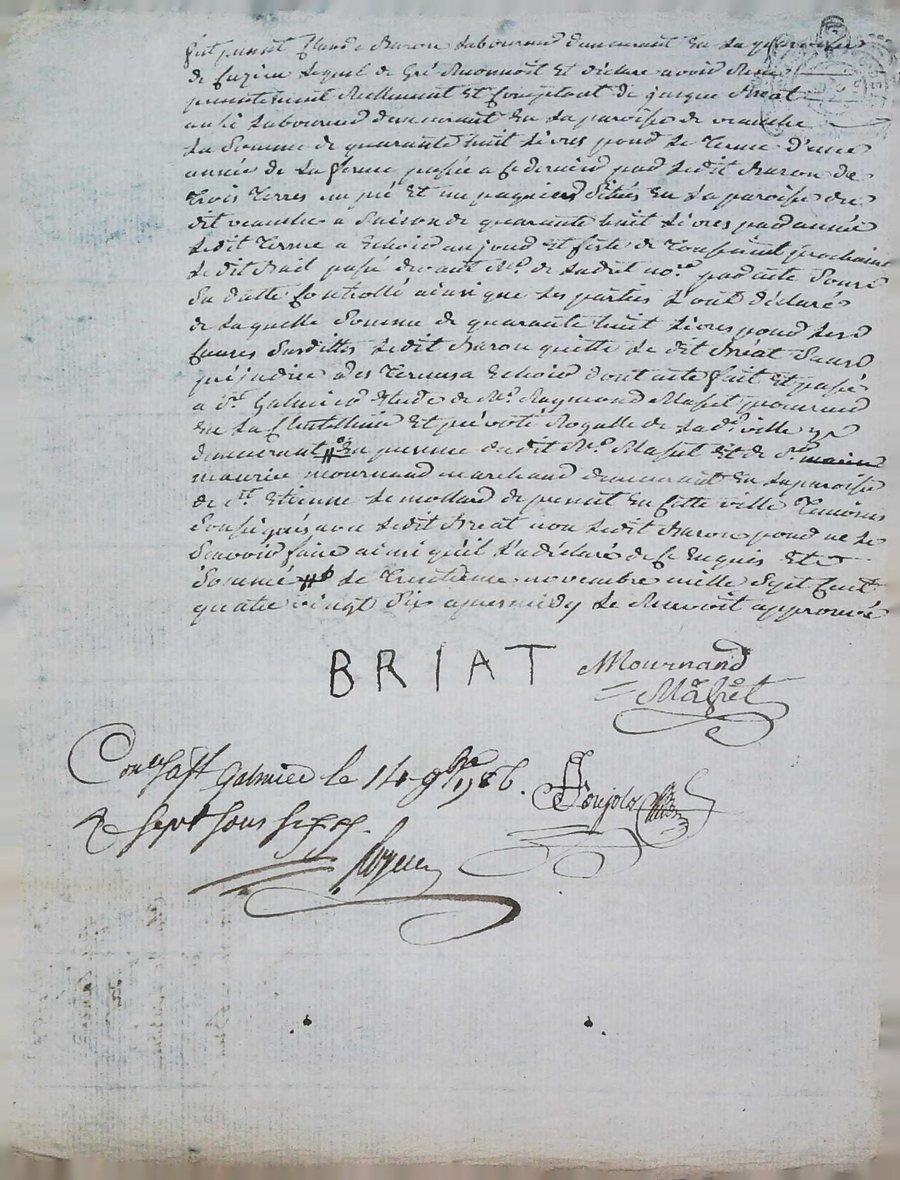 fut présent Claude Baron Laboureur demeurant En La paroisse
de Cuzieu Lequel de Gré Reconnoit Et déclare avoir Reçu
présentement Réellement Et Comptant de jacque Breat
aussi Laboureur demeurant En La paroisse de veauche
La Somme de quarante huit Livres pour Le Terme d'une
année de La ferme passée a Ce dernier par Ledit Baron de
Trois Terres un pré Et un paquier Situés En La paroisse du
dit veauche a Raison de quarante huit Livres par année
Ledit Terme a Echoir au jour Et feste de Toussaint prochaine
Ledit Bail passé devant Me. de Ladret nore. par acte Sous
Sa datte Controllé ainsi que Les parties L'ont déclaré
de Laquelle Somme de quarante huit Livres pour Les
Causes Susdittes Ledit Baron quitte Le dit Bréat Sans
préjudice des Termes a Echoir dont acte fait Et passé
a St. Galmier Etude de Me. Raymond Masset procureur
En La Chatellenie Et prévoté Royalle de La de. ville y
demeurant En présence dudit Me. Masset Et de Sr.
maurice mournand marchand demeurant En La paroisse
de St. Etienne Le mollard de présent En Cette ville Temoins
Soussignés avec Ledit Breat non Ledit Baron pour ne Le
Scavoir faire ainsi qu'il L'a déclaré de Ce Enquis Et
Sommé Le Treizieme novembre mille Sept Cent
quatre vingt Six apres midy Le Renvoit approuvé
BRIAT Mournand
Masset
Con.lé a St Galmier le 14 9bre 1786.
R Sept Sous Six